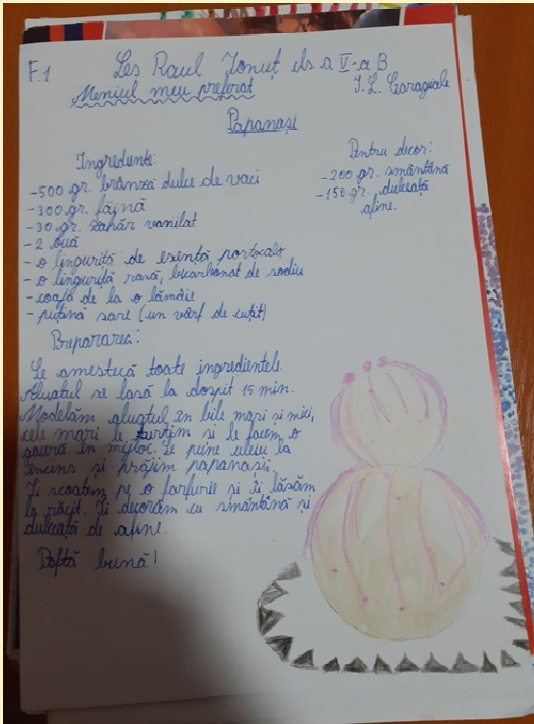 F.1
Les Raul Ionuț cls a V-a B
Meniul meu preferat
I.L. Caragiale
Papanași
Ingrediente:
-500 gr. brânză dulce de vaci
-300 gr. făină
-30 gr. zahăr vanilat
-2 ouă
-o linguriță de esență portocale
-o linguriță rasă, bicarbonat de sodiu
-coajă de la o lămâie
-puțină sare (un vârf de cuțit)
Pentru decor:
-200 gr. smântână
-150 gr. dulceață
afine.
Prepararea:
Se amestecă toate ingredientele.
Aluatul se lasă la dospit 15 min.
Modelăm aluatul în bile mari și mici,
cele mari le turtim și le facem o
gaură în mijloc. Se pune uleiu la
încins și prăjim papanasii.
Îi scoatem pe o farfurie și îi lăsăm
la răcit. Îi decorăm cu smântână și
dulceață de afine.
Poftă bună!